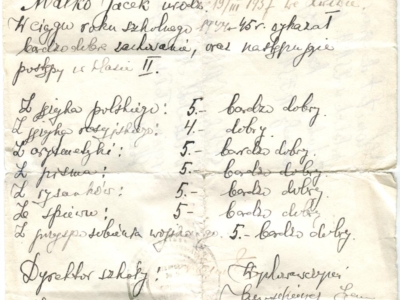 Małko Jacek urodz. 19/III 1937 we Lwowie.
W ciągu roku szkolnego 1944-45 r. wykazał
bardzo dobre zachowanie, oraz następujące
postępy w klasie II.
Z języka polskiego: 5.- bardzo dobry.
Z języka rosyjskiego: 4.- dobry.
Z arytmetyki: 5.- bardzo dobry.
Z pisma: 5.- bardzo dobry.
Z rysunków: 5.- bardzo dobry.
Ze śpiewu: 5.- bardzo dobry.
Z przysposobienia wojennego. 5.- bardzo dobry.
Dyrektor szkoły: Wychowawczyni